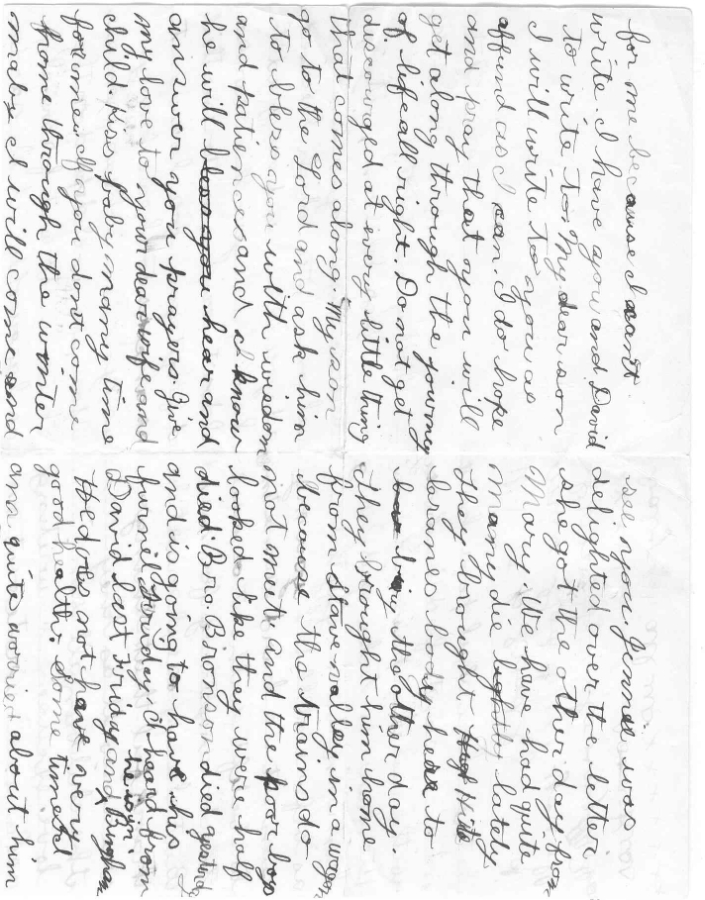 for me because I can't
write. I have you and David
to write to. My dear son
I will write to you as
offund as I can. I do hope
and pray that you will
get along through the journy
of life all right. Do not get
discouraged at every little thing
that comes along. My son
go to the Lord and ask him
to bless you with wisdom
and patience and I know
he will hear and
answer you prayers. Give
my love to your dear wife and
child. Kiss baby many time
for me. If you dont come
home through the winter
maby I will come and
see you. Jennee was
delighted over the letter
she got the other day from
Mary. We have had quite
many die lately
they brought
body here to
bury the other day
they brought him home
from Starvalley in a wagon
because the trains do
not meet and the poor boys
looked like they were half
died. Bro. Bronson died yesterday
and is going to have his
furnel Friday. I heard from
David last Friday and he is in Bingham
He does not have very
good health. Some time I
am quite worried about him